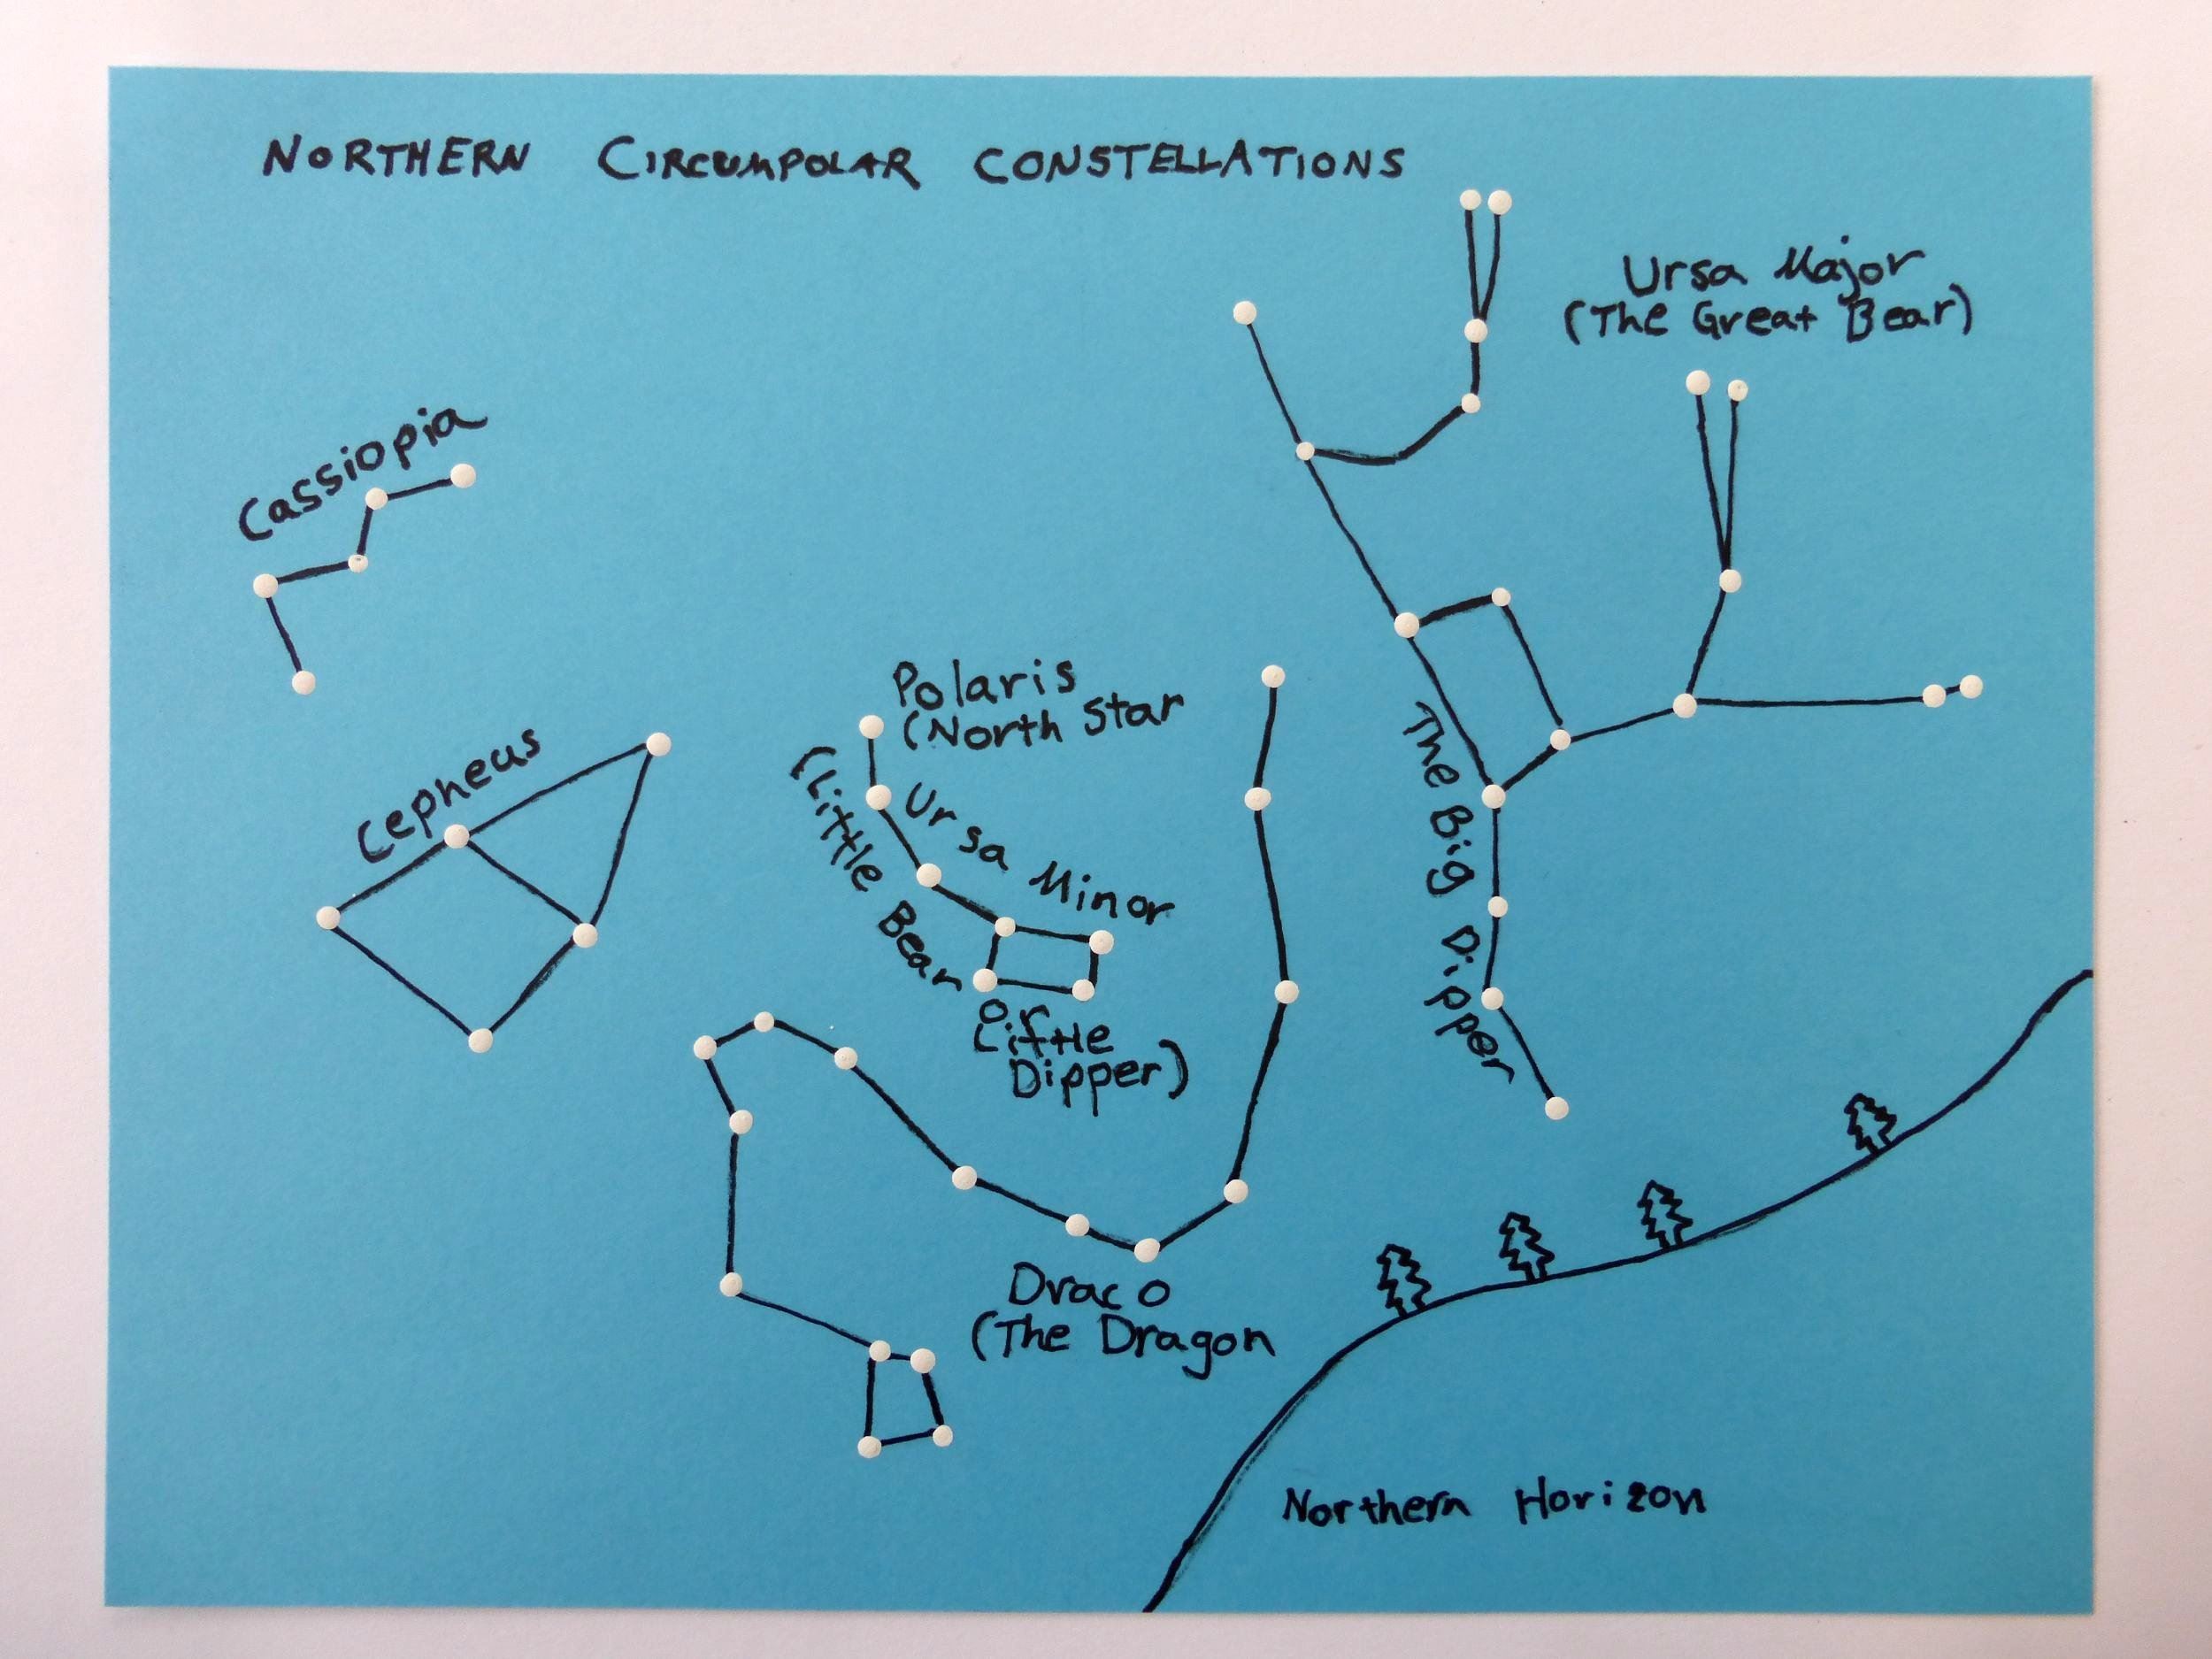 NORTHERN CIRCUMPOLAR CONSTELLATIONS
Ursa Major
(The Great Bear)
Cassiopia
Cepheus
Polaris
(North Star
Ursa Minor
(Little Bear
or
Little
Dipper)
The Big Dipper
Draco
(The Dragon
Northern Horizon